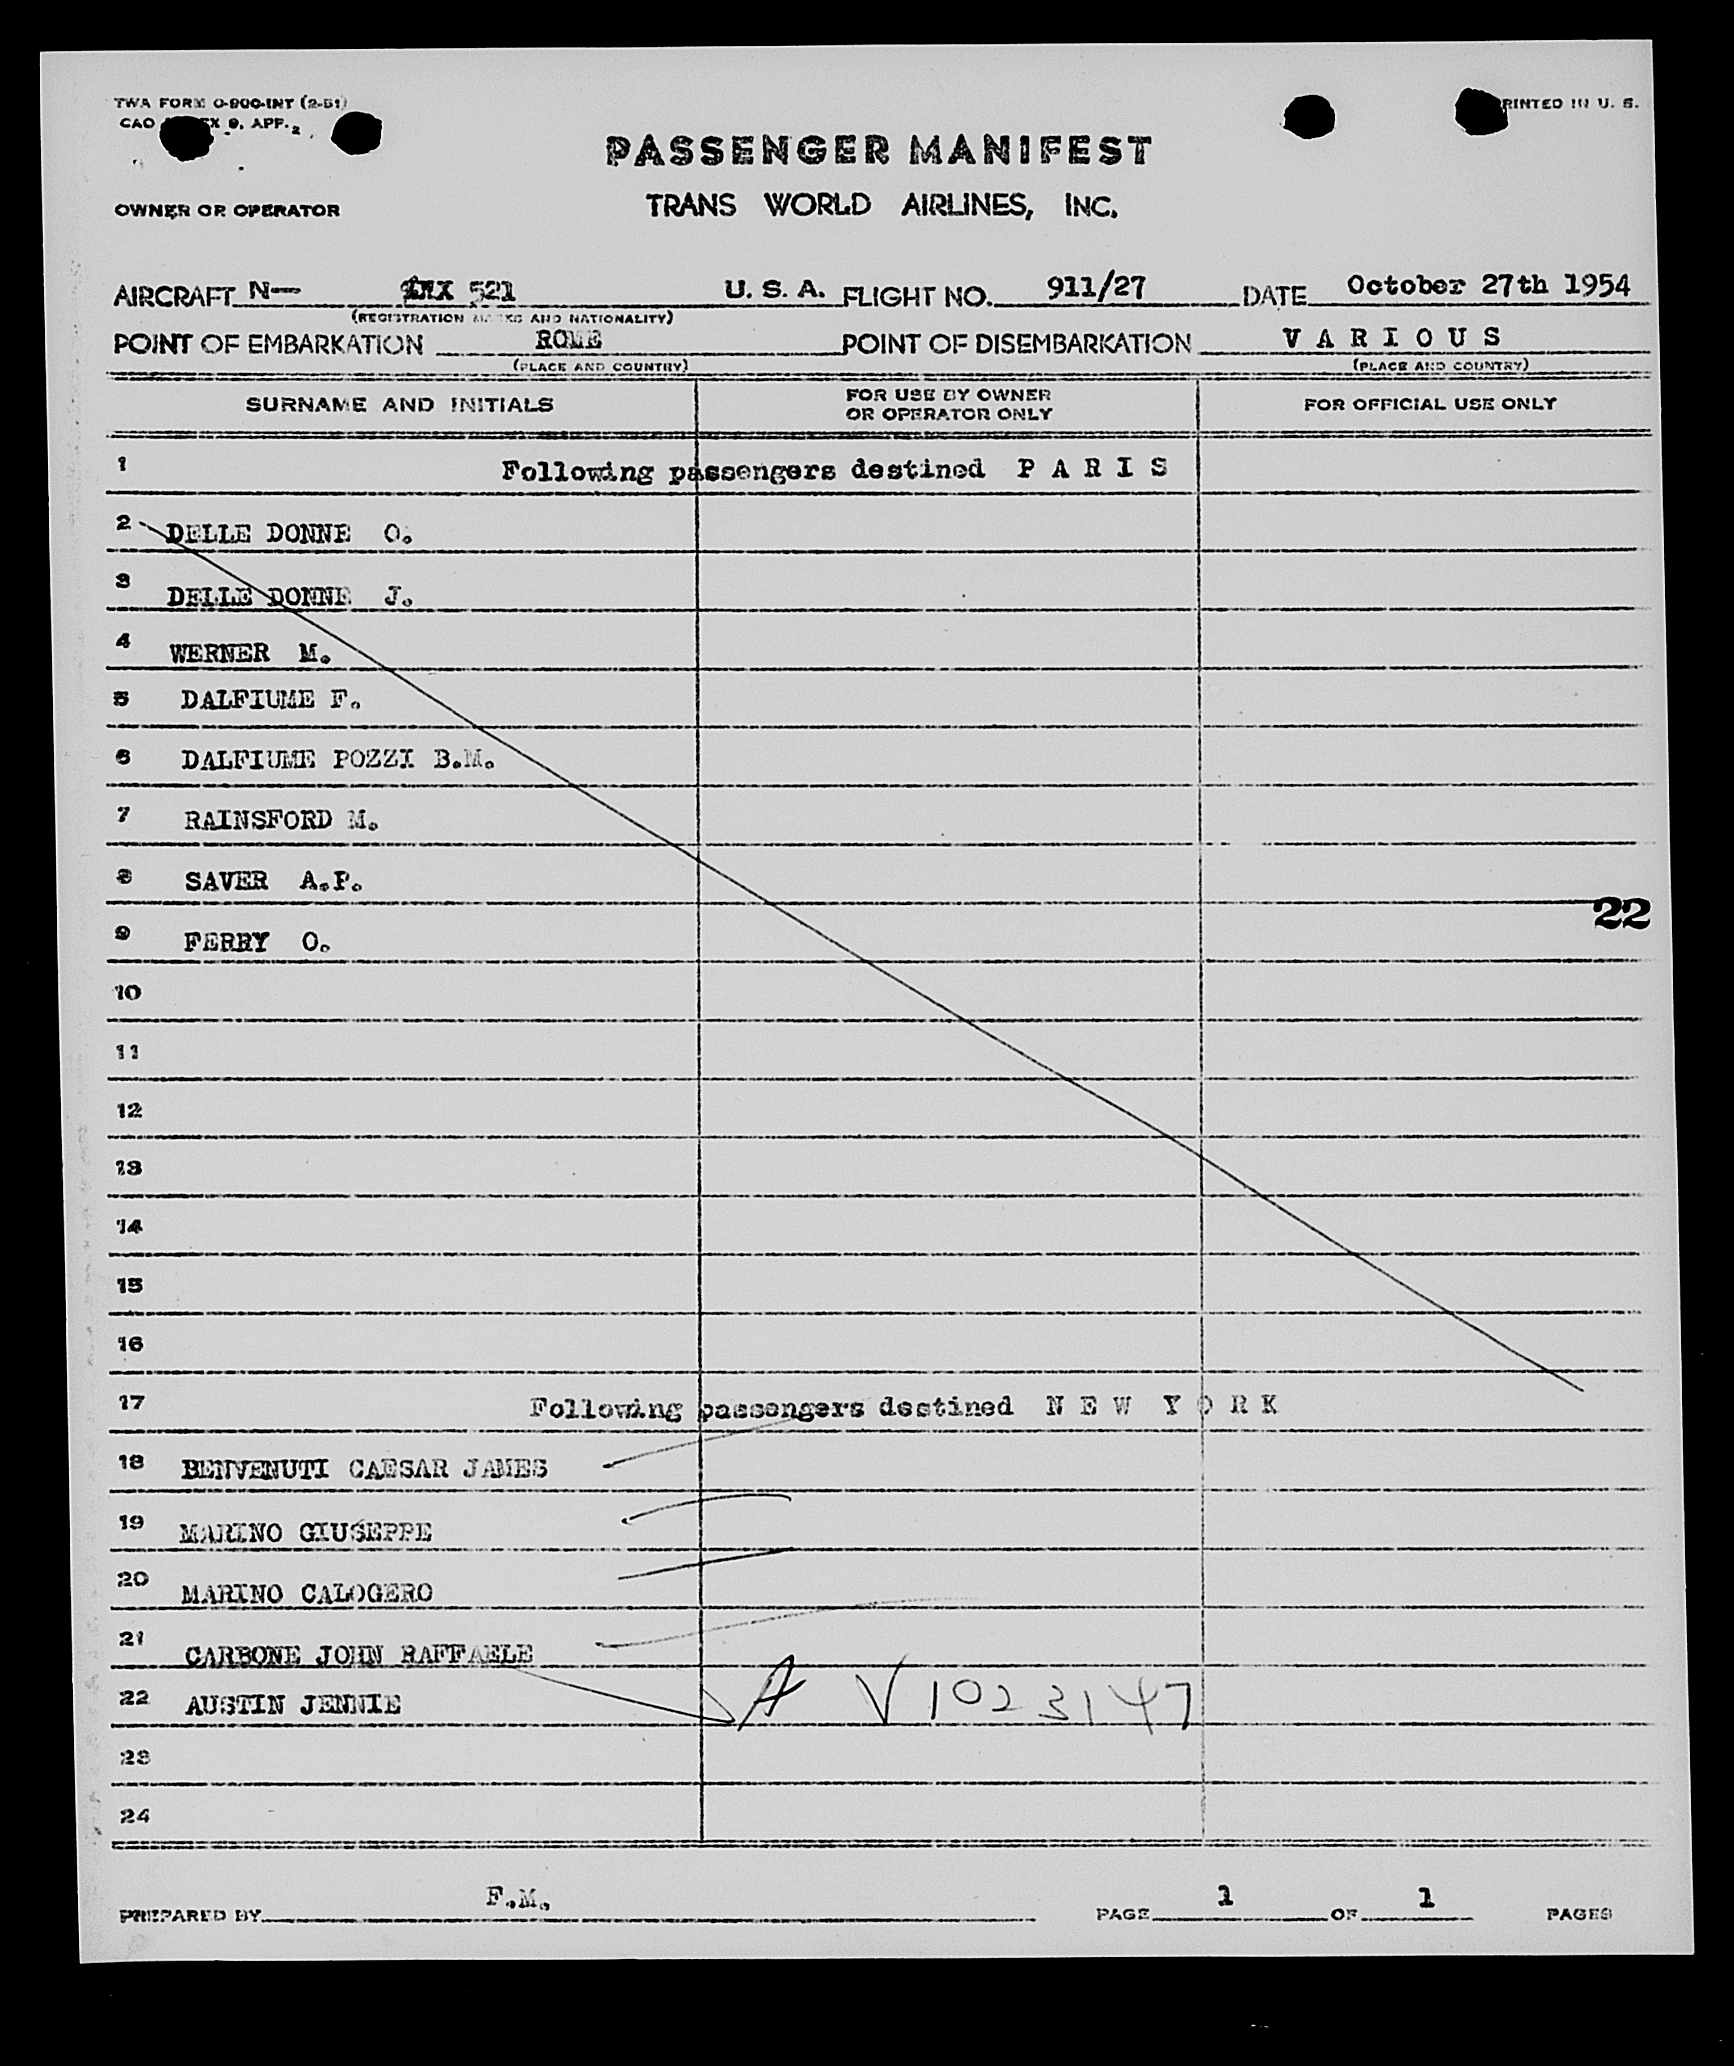 TWA FORM O-900-INT (2-51) PRINTED IN U. S.
CAO 9, APP. 2
PASSENGER MANIFEST
OWNER OR OPERATOR TRANS WORLD AIRLINES, INC.
AIRCRAFT N— 521 U. S. A. FLIGHT NO. 911/27 DATE October 27th 1954
(REGISTRATION MARKS AND NATIONALITY)
POINT OF EMBARKATION ROME POINT OF DISEMBARKATION V A R I O U S
(PLACE AND COUNTRY) (PLACE AND COUNTRY)
SURNAME AND INITIALS FOR USE BY OWNER OR OPERATOR ONLY FOR OFFICIAL USE ONLY
1 Following passengers destined P A R I S
2 DELLE DONNE O.
3 DELLE DONNE J.
4 WERNER M.
5 DALFIUME F.
6 DALFIUME POZZI B.M.
7 RAINSFORD M.
8 SAVER A.P.
22
9 FERRY O.
10
11
12
13
14
15
16
17 Following passengers destined N E W Y O R K
18 BENVENUTI CAESAR JAMES
19 MARINO GIUSEPPE
20 MARINO CALOGERO
21 CARBONE JOHN RAFFAELE
22 AUSTIN JENNIE A V 1023147
23
24
PREPARED BY F.M. PAGE 1 OF 1 PAGES